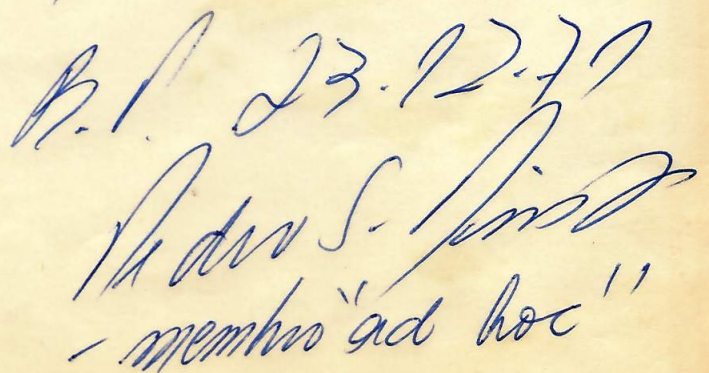 B.P. 23.12.71
Pedro S.
- membro "ad hoc"